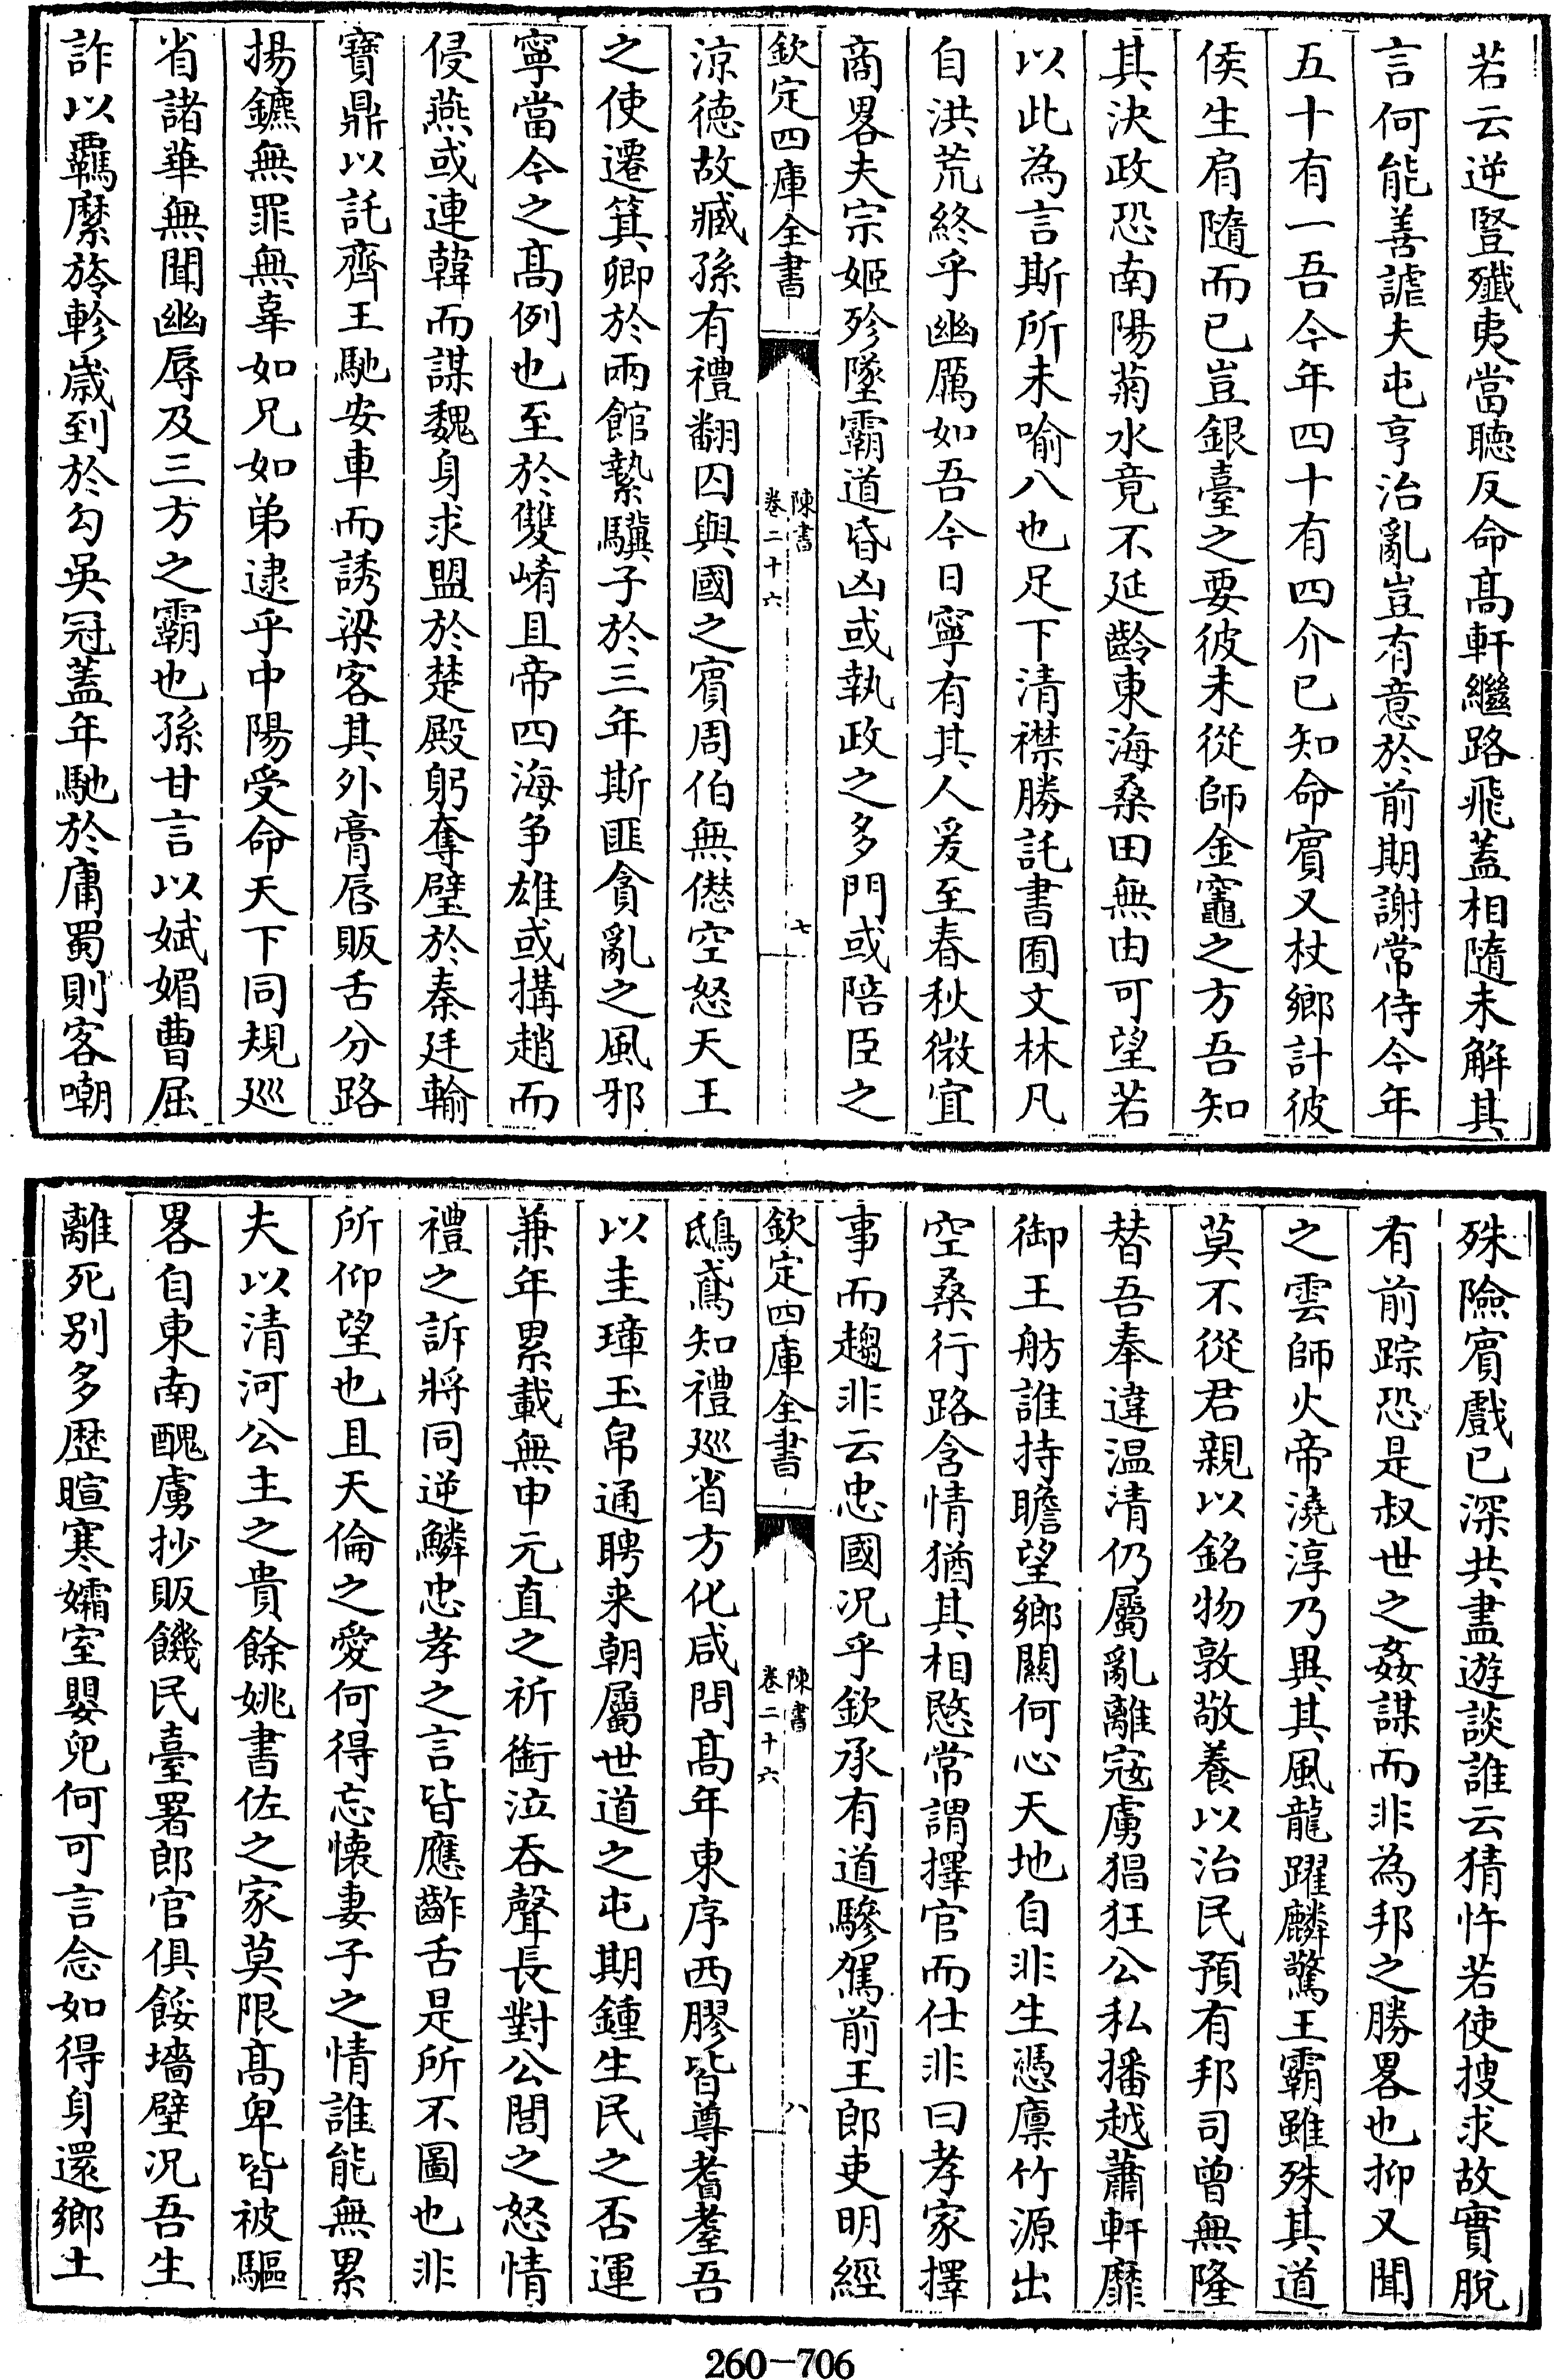 若云逆豎殲夷當聴反命髙軒繼路飛蓋相隨未解其
言何能善謔夫屯亨治亂豈有意於前期謝常侍今年
五十有一吾今年四十有四介已知命賔又杖鄉計彼
侯生肩隨而已豈銀臺之要彼未從師金竈之方吾知
其決政恐南陽菊水竟不延齡東海桑田無由可望若
以此為言斯所未喻八也足下清襟勝託書囿文林凡
自洪荒終乎幽厲如吾今日寧有其人爰至春秋微宜
商畧夫宗姬殄墜霸道昏凶或執政之多門或陪臣之
欽定四庫全書
陳書
卷二十六
七
涼徳故臧孫有禮翻囚與國之賔周伯無愆空怒天王
之使遷箕卿於兩館縶驥子於三年斯匪貪亂之風邪
寧當今之髙例也至於雙崤且帝四海争雄或搆趙而
侵燕或連韓而謀魏身求盟於楚殿躬奪璧於秦廷輸
寶鼎以託齊王馳安車而誘梁客其外膏唇販舌分路
揚鑣無罪無辜如兄如弟逮乎中陽受命天下同規廵
省諸華無聞幽辱及三方之霸也孫甘言以娬媚曹屈
詐以羈縻旍軫嵗到於勾吳冠蓋年馳於庸蜀則客嘲
殊險賔戲已深共盡遊談誰云猜忤若使搜求故實脫
有前踪恐是叔世之姦謀而非為邦之勝畧也抑又聞
之雲師火帝澆淳乃異其風龍躍麟驚王霸雖殊其道
莫不從君親以銘物敦敬養以治民預有邦司曾無隆
替吾奉違温清仍屬亂離寇虜猖狂公私播越蕭軒靡
御王舫誰持瞻望鄉關何心天地自非生憑廪竹源出
空桑行路含情猶其相愍常謂擇官而仕非曰孝家擇
事而趨非云忠國况乎欽承有道驂駕前王郎吏明經
欽定四庫全書
陳書
卷二十六
八
鴟鳶知禮廵省方化咸問髙年東序西膠皆尊耆耋吾
以圭璋玉帛通聘来朝屬世道之屯期鍾生民之否運
兼年累載無申元直之祈銜泣吞聲長對公閭之怒情
禮之訴將同逆鱗忠孝之言皆應齚舌是所不圖也非
所仰望也且天倫之愛何得忘懐妻子之情誰能無累
夫以清河公主之貴餘姚書佐之家莫限髙卑皆被驅
畧自東南醜虜抄販饑民臺署郎官俱餒墻壁况吾生
離死别多歴暄寒孀室嬰兒何可言念如得身還鄉土
260-706